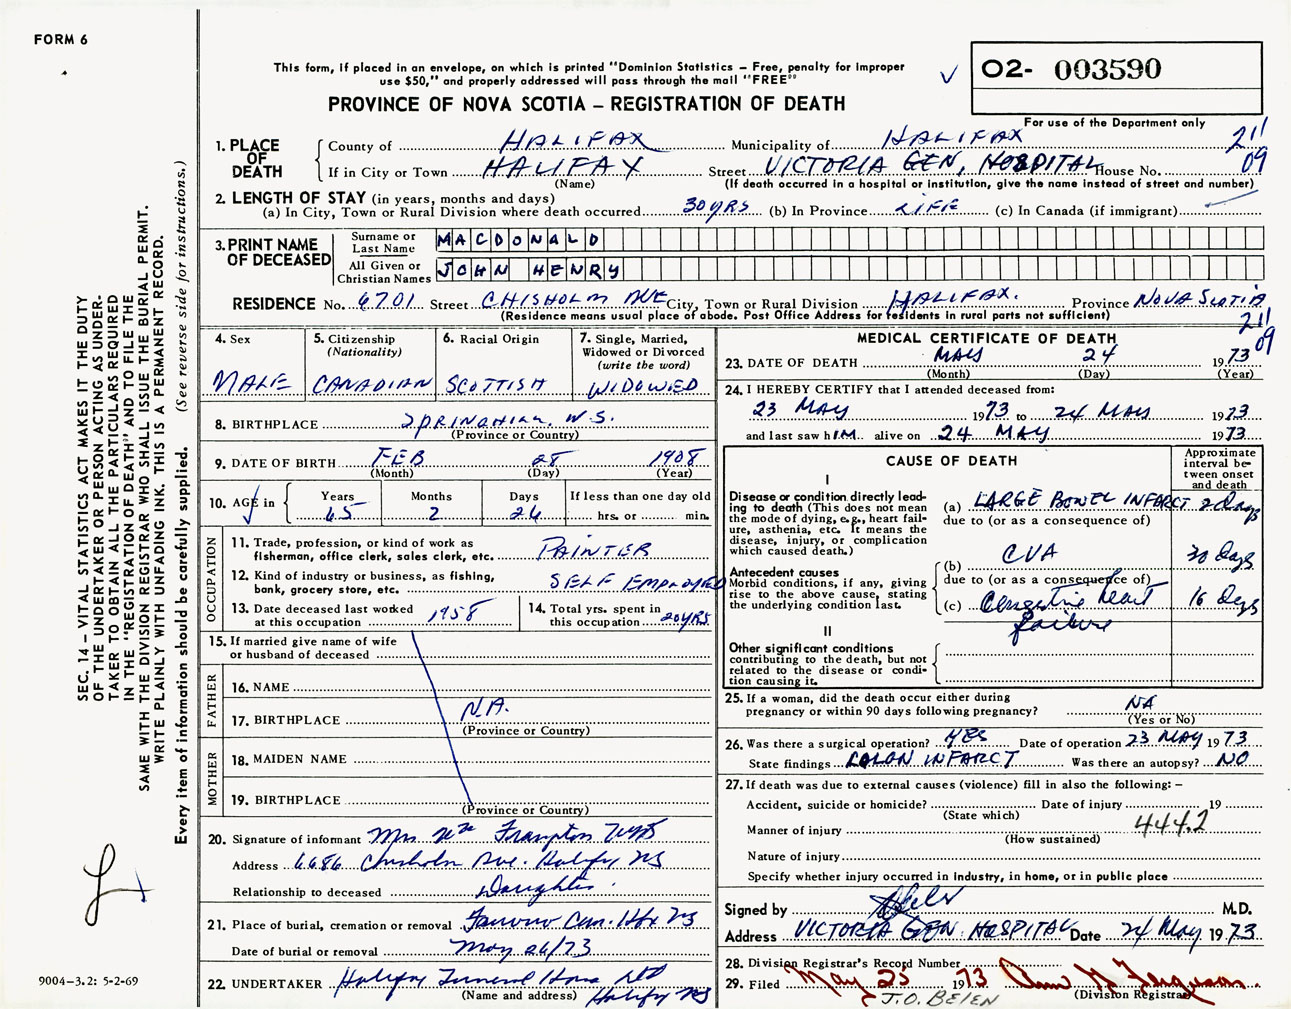 FORM 6
This form, if placed in an envelope, on which is printed "Dominion Statistics – Free, penalty for improper
use $50," and properly addressed will pass through the mail "FREE"
O2- 003590
PROVINCE OF NOVA SCOTIA – REGISTRATION OF DEATH
For use of the Department only
1. PLACE OF DEATH
County of HALIFAX Municipality of HALIFAX 211
If in City or Town HALIFAX Street VICTORIA GEN, HOSPITAL House No. 09
(Name) (If death occurred in a hospital or institution, give the name instead of street and number)
2. LENGTH OF STAY (in years, months and days)
(a) In City, Town or Rural Division where death occurred 30 YRS (b) In Province LIFE (c) In Canada (if immigrant)
3. PRINT NAME OF DECEASED
Surname or Last Name MACDONALD
All Given or Christian Names JOHN HENRY
RESIDENCE No. 6701 Street CHISHOLM AVE City, Town or Rural Division HALIFAX. Province NOVA SCOTIA
(Residence means usual place of abode. Post Office Address for residents in rural parts not sufficient)
211
09
4. Sex MALE
5. Citizenship (Nationality) CANADIAN
6. Racial Origin SCOTTISH
7. Single, Married, Widowed or Divorced (write the word) WIDOWED
8. BIRTHPLACE SPRINGHILL N.S.
(Province or Country)
9. DATE OF BIRTH FEB 28 1908
(Month) (Day) (Year)
10. AGE in Years 65 Months 2 Days 26 If less than one day old hrs. or min.
OCCUPATION
11. Trade, profession, or kind of work as fisherman, office clerk, sales clerk, etc. PAINTER
12. Kind of industry or business, as fishing, bank, grocery store, etc. SELF EMPLOYED
13. Date deceased last worked at this occupation 1958
14. Total yrs. spent in this occupation 20 YRS
15. If married give name of wife or husband of deceased
FATHER
16. NAME
17. BIRTHPLACE N.A.
(Province or Country)
MOTHER
18. MAIDEN NAME
19. BIRTHPLACE
(Province or Country)
20. Signature of informant Mrs. Wm Frampton
Address 6686 Chisholm Ave. Halifax NS
Relationship to deceased Daughter
21. Place of burial, cremation or removal Fairview Cem. Hfx NS
Date of burial or removal May 26/73
22. UNDERTAKER Halifax Funeral Home Ltd
(Name and address) Halifax NS
MEDICAL CERTIFICATE OF DEATH
23. DATE OF DEATH MAY 24 1973
(Month) (Day) (Year)
24. I HEREBY CERTIFY that I attended deceased from:
23 MAY 1973 to 24 MAY 1973
and last saw hIM. alive on 24 MAY 1973
CAUSE OF DEATH
Approximate interval between onset and death
I
Disease or condition directly leading to death (This does not mean the mode of dying, e.g., heart failure, asthenia, etc. It means the disease, injury, or complication which caused death.)
(a) LARGE BOWEL INFARCT 2 days
due to (or as a consequence of)
Antecedent causes
Morbid conditions, if any, giving rise to the above cause, stating the underlying condition last.
(b) CVA 30 days
due to (or as a consequence of)
(c) Congestive heart failure 16 days
II
Other significant conditions
contributing to the death, but not related to the disease or condition causing it.
25. If a woman, did the death occur either during pregnancy or within 90 days following pregnancy? NA
(Yes or No)
26. Was there a surgical operation? YES Date of operation 23 MAY 1973
State findings COLON INFARCT Was there an autopsy? NO
27. If death was due to external causes (violence) fill in also the following: –
Accident, suicide or homicide? Date of injury 19
(State which)
Manner of injury 444.2
(How sustained)
Nature of injury
Specify whether injury occurred in industry, in home, or in public place
Signed by M.D.
Address VICTORIA GEN. HOSPITAL Date 24 May 1973
28. Division Registrar's Record Number
29. Filed May 25 1973
(Division Registrar)
J.O. BELEN
SEC. 14 – VITAL STATISTICS ACT MAKES IT THE DUTY
OF THE UNDERTAKER OR PERSON ACTING AS UNDER-
TAKER TO OBTAIN ALL THE PARTICULARS REQUIRED
IN THE "REGISTRATION OF DEATH" AND TO FILE THE
SAME WITH THE DIVISION REGISTRAR WHO SHALL ISSUE THE BURIAL PERMIT.
WRITE PLAINLY WITH UNFADING INK. THIS IS A PERMANENT RECORD.
Every item of information should be carefully supplied. (See reverse side for instructions.)
9004–3.2: 5-2-69